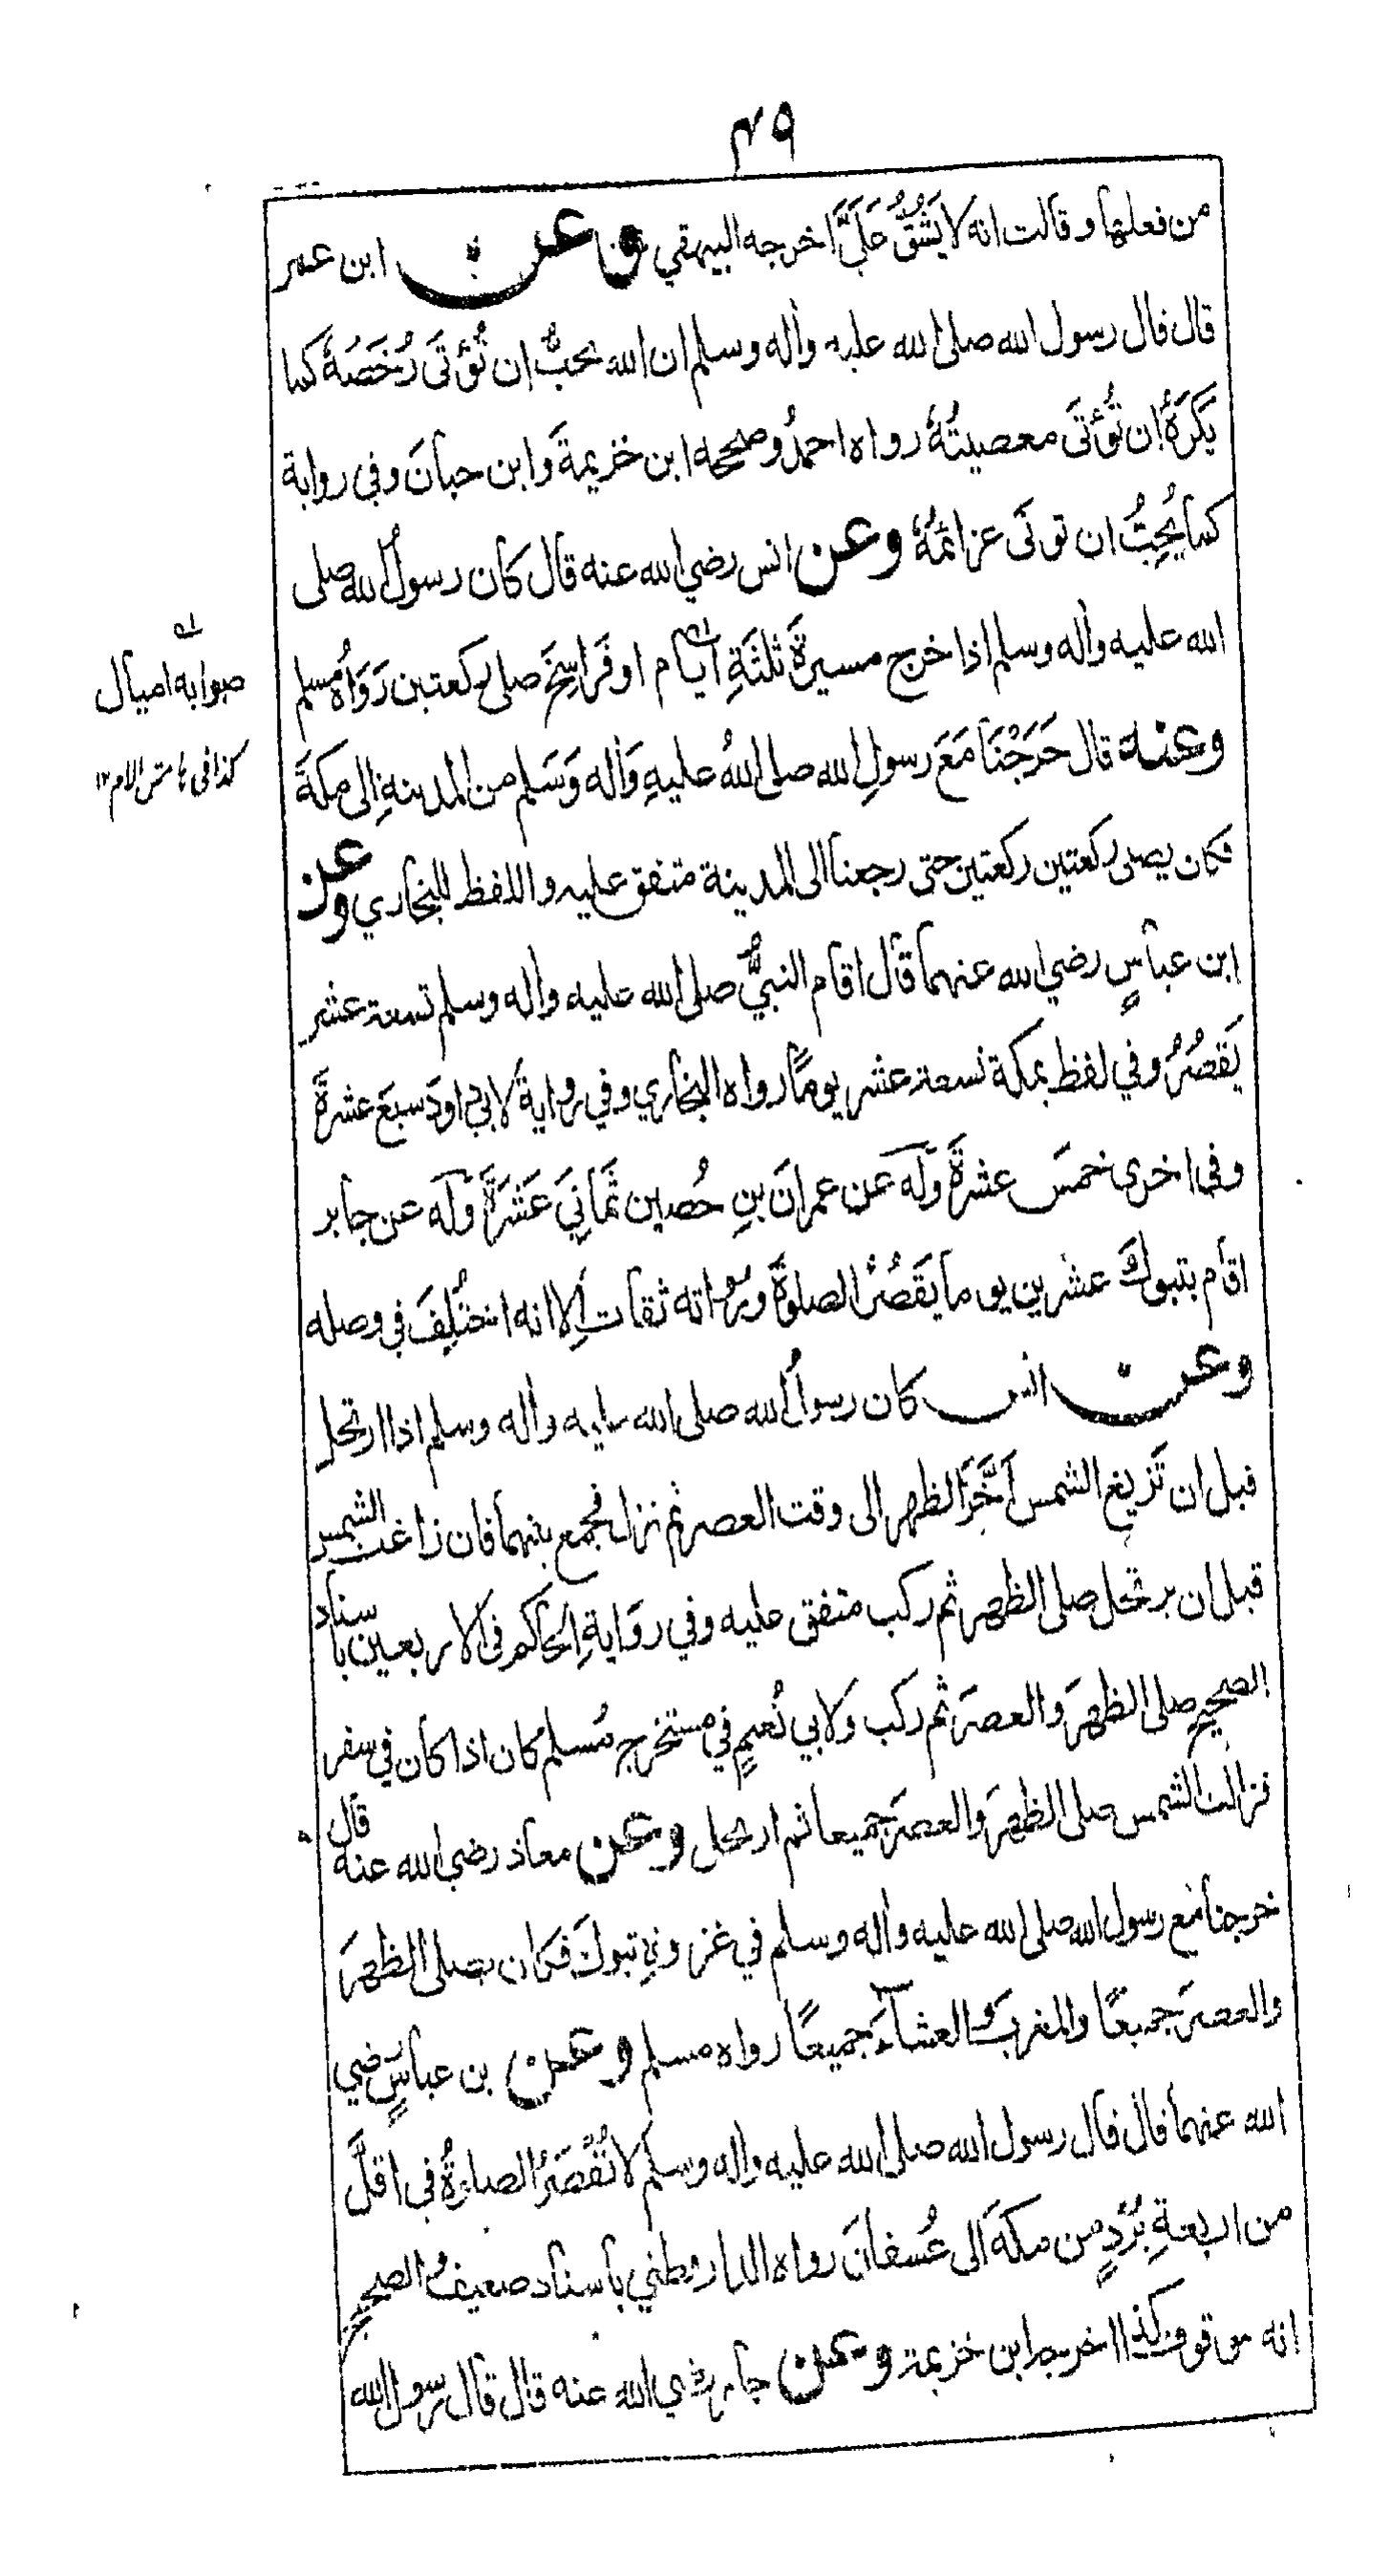 ٤٩
من فعلها وقالت انه لا يَشُقُّ عَلَيَّ اخرجه البيهقي وعن ابن عمر
قال قال رسول الله صلى الله عليه واٰله وسلم ان الله يحبُّ ان تُؤتَى رُخَصَهٗ كما
يَكرَهُ ان تُؤتَى معصيتُهٗ رواه احمدُ وصححه ابن خزيمةَ وابن حبانَ وفي رواية
كما يُحِبُّ ان توتَى عزائمُهٗ وعن انس رضي الله عنه قال كان رسولُ الله صلى
الله عليه واٰله وسلم اذا خرج مسيرةَ ثلثةِ ايام او فَرَاسِخَ صلى ركعتين رَوَاهُ مسلم
وعنه قال خَرَجْنَا مَعَ رسولِ الله صلى اللهُ عليهِ وَاٰله وَسَلم من المدينةِ الى مكةَ
فكان يصلى ركعتين ركعتين حتى رجعنا الى المدينة متفق عليه واللفظ للبخاري وعن
ابن عباسٍ رضي الله عنهما قال اقام النبيُّ صلى الله عليه واٰله وسلم تسعة عشر
يَقصُرُ وفي لفظ بمكة تسعة عشر يومًا رواه البخاري وفي روايةٍ لابي داودَ سبعَ عشرةَ
وفي اخرى خمسَ عشرةَ وَلَه عن عمرانَ بنِ حُصين ثَمَانِيَ عَشَرَةَ وَلَه عن جابر
اقام بتبوكَ عشرين يوما يَقصُرُ الصلوةَ ورُواته ثقات اِلا انه اختُلِفَ في وصله
وعن انس كان رسولُ الله صلى الله عليه واٰله وسلم اذا ارتحل
قبل ان تَزيغ الشمس اَخَّرَ الظهر الى وقت العصر ثم نزل فجمع بينهما فان زاغت الشمس
قبل ان يرتحل صلى الظهر ثم ركب متفق عليه وفي روَايةِ الحاكم في الاربعين باسناد
الصحيح صلى الظهرَ والعصرَ ثم ركب ولابي نُعيمٍ في مستخرج مُسلم كان اذا كان في سفر
فزالت الشمس صلى الظهرَ والعصرَ جميعا ثم ارتحل وعن معاذ رضي الله عنه قال
خرجنا مع رسول الله صلى الله عليه واٰله وسلم في غزوةِ تبوكَ فكان يصلى الظهرَ
والعصرَ جميعًا والمغربَ والعشآءَ جميعًا رواه مسلم وعن بن عباسٍ رضي
الله عنهما قال قال رسول الله صلى الله عليه واٰله وسلم لا تُقْصَرُ الصلوةُ في اقلَّ
من اربعةِ بُرُدٍ من مكةَ الى عُسفانَ رواه الدارقطني باسناد ضعيف والصحيح
انه موقوف كذا اخرجه ابن خزيمة وعن جابر رضي الله عنه قال قال رسول الله
صوابه اميال
كذا في هامش الام ١٢